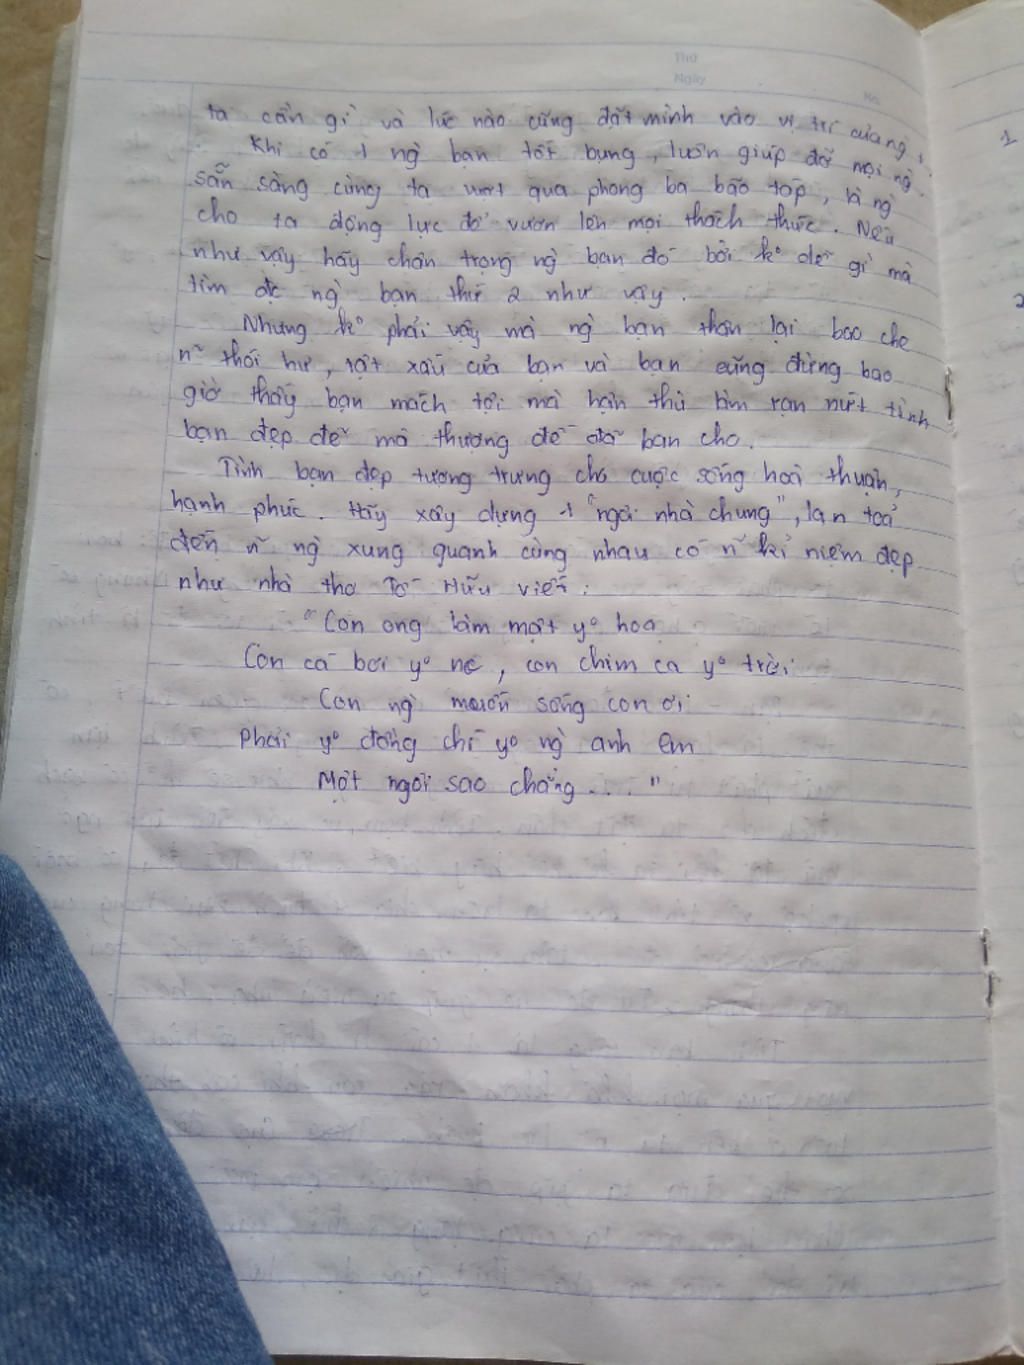 Thứ
Ngày
No.
ta cần gì và lúc nào cũng đặt mình vào vị trí của ng`.
Khi có 1 ng` bạn tốt bụng, luôn giúp đỡ mọi ng`
sẵn sàng cùng ta vượt qua phong ba bão táp, là ng`
cho ta động lực để vươn lên mọi thách thức. Nếu
như vậy hãy chân trọng ng` bạn đó bởi k° dễ gì mà
tìm đc ng` bạn thứ 2 như vậy.
Nhưng k° phải vậy mà ng` bạn thân lại bao che
n~ thói hư, tật xấu của bạn và bạn cũng đừng bao
giờ thấy bạn mách tội mà hận thù làm rạn nứt tình
bạn đẹp đẽ mà thượng đế đã ban cho.
Tình bạn đẹp tượng trưng cho cuộc sống hoà thuận,
hạnh phúc. Hãy xây dựng 1 "ngôi nhà chung", lan toả
đến n~ ng` xung quanh cùng nhau có n~ kỉ niệm đẹp
như nhà thơ Tố Hữu viết:
"Con ong làm mật y° hoa
Con cá bơi y° nc, con chim ca y° trời
Con ng` muốn sống con ơi
Phải y° đồng chí y° ng` anh em
Một ngôi sao chẳng... "
1
2